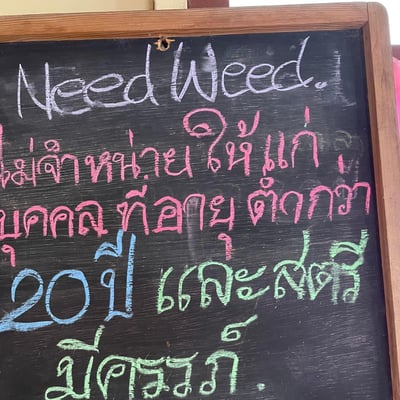 Need Weed.
ไม่จำหน่ายให้แก่
บุคคลที่อายุต่ำกว่า
20ปี และสตรี
มีครรภ์.